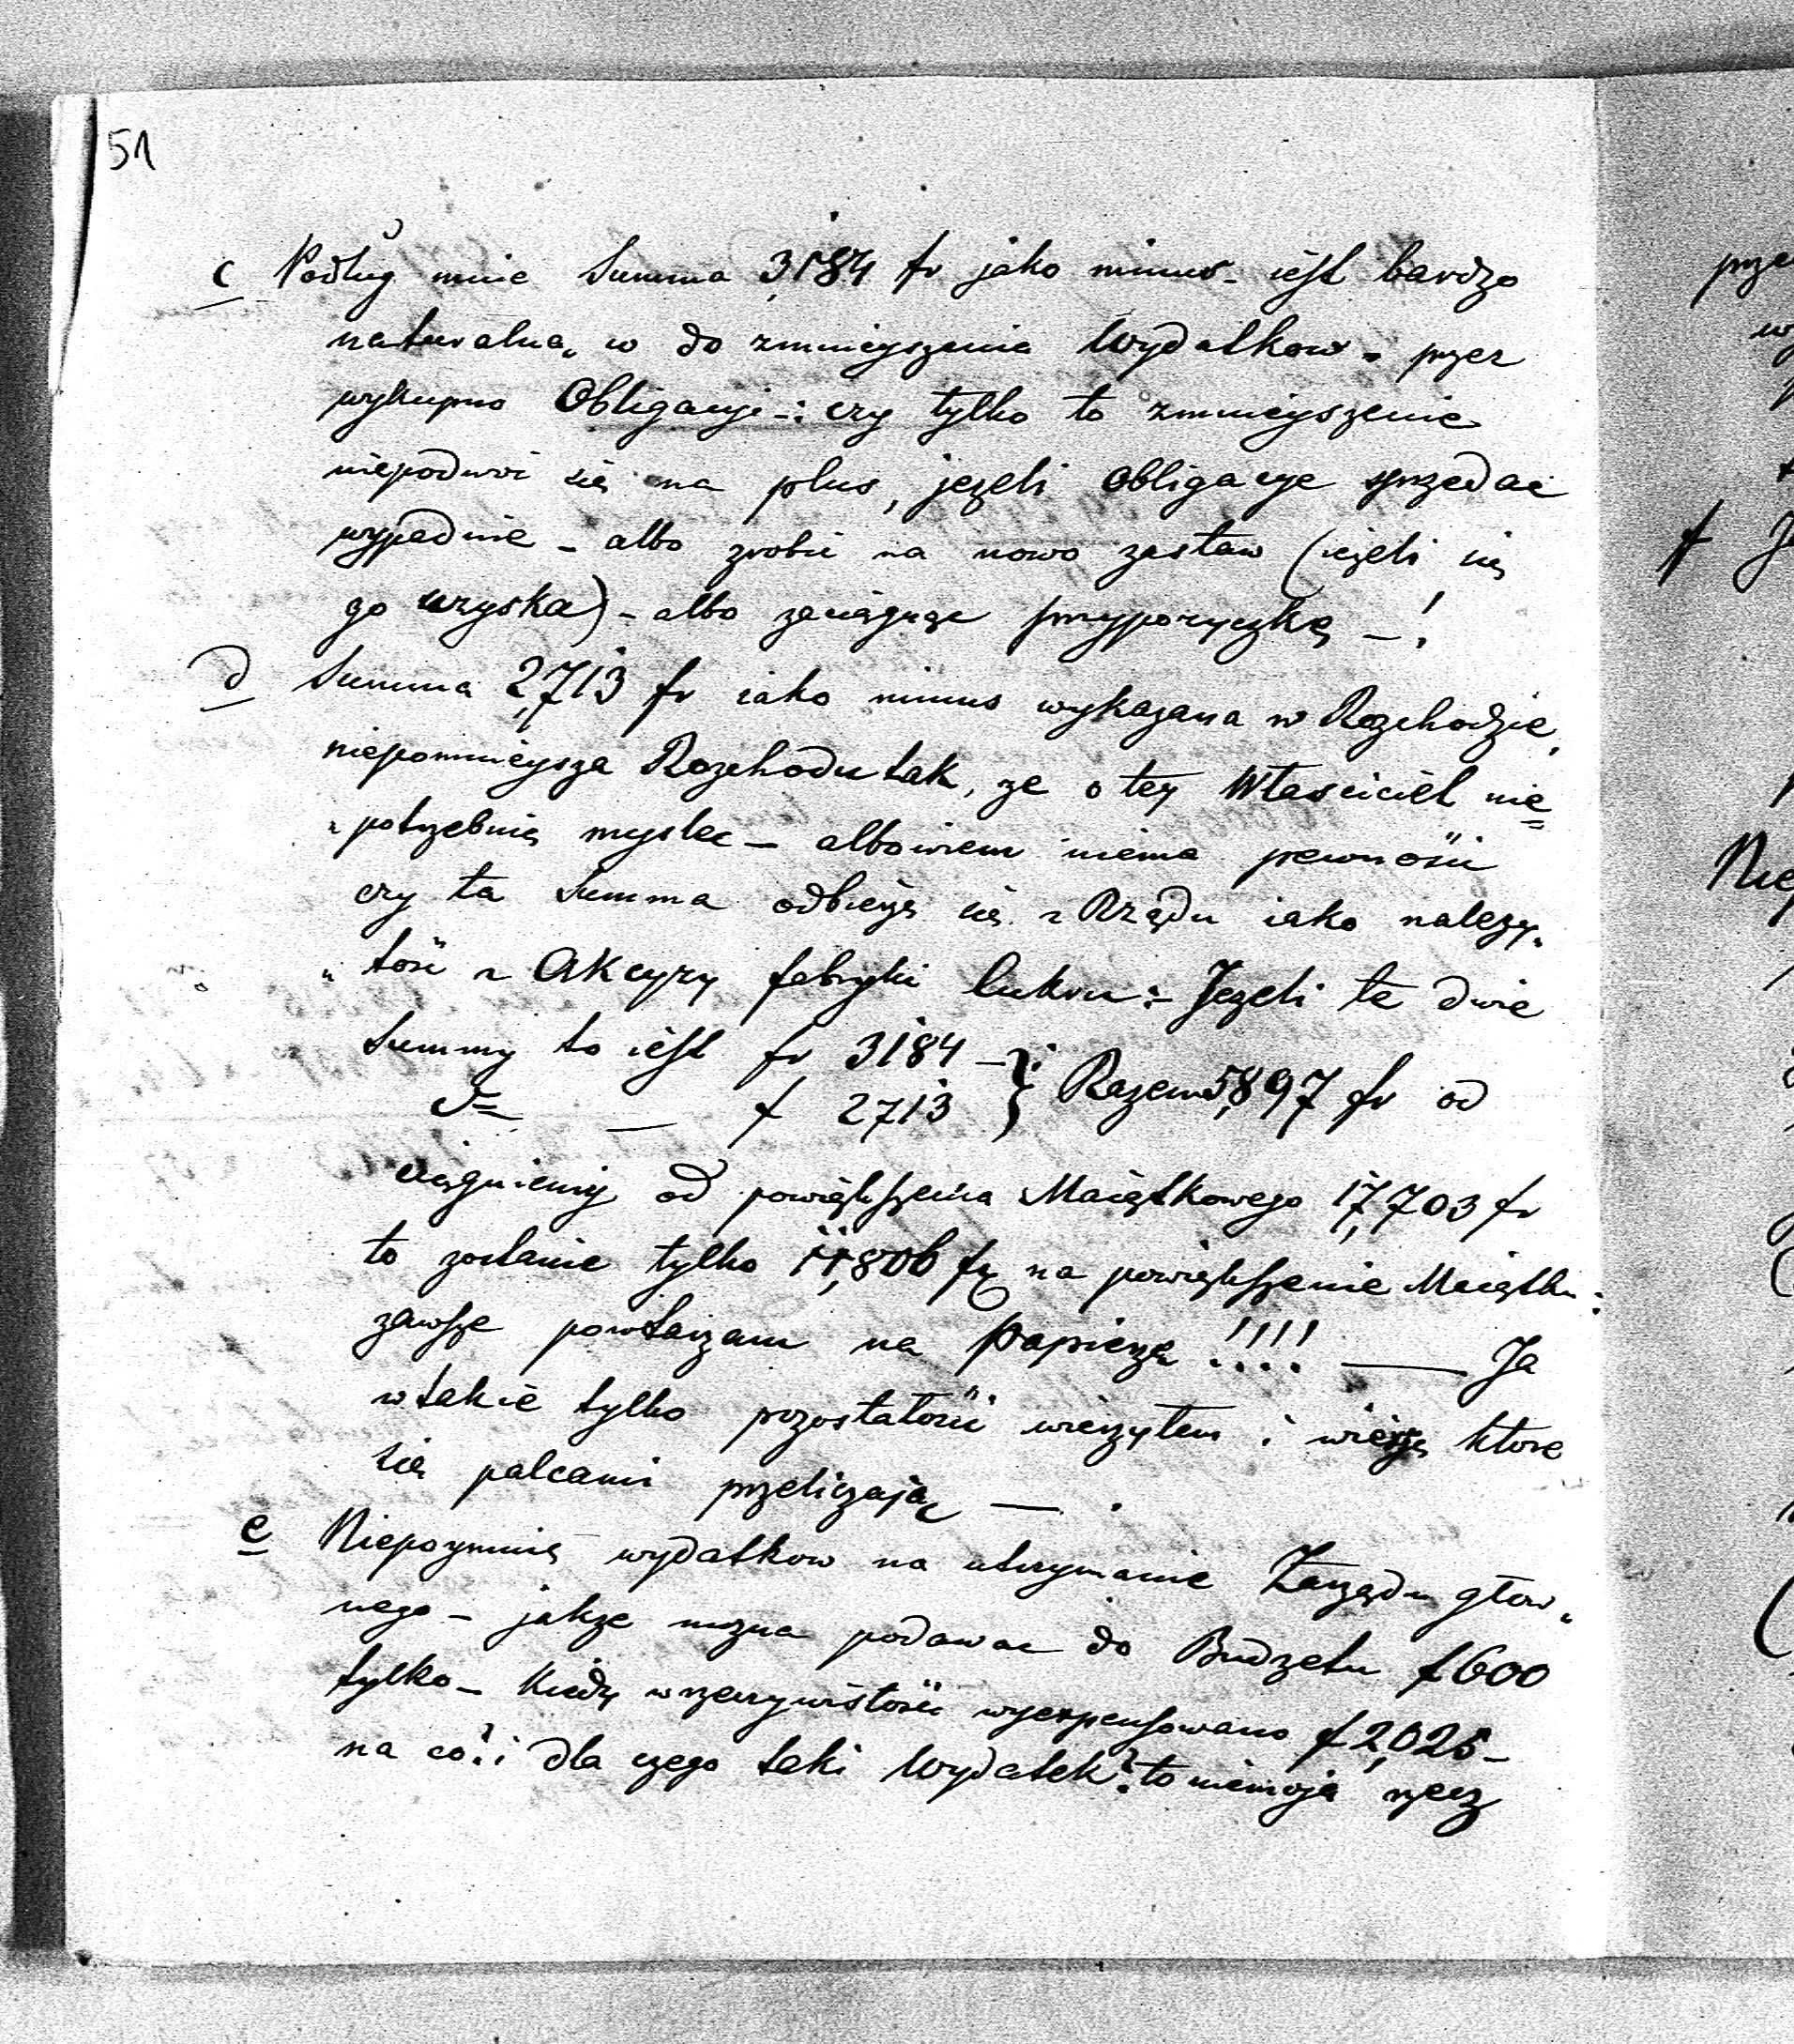 51
c Podług mnie Summa 3,184 fr jako minus - iest bardzo
naturalna, w do zmnieyszenia Wydatkow - przez
wykupno Obligacyi -: czy tylko to zmnieyszenie
niepodwoi się na plus, jezeli Obligacye sprzedac
wypadnie - albo zrobic na nowo zastaw (iezeli się
go uzyska) - albo zaciągnąc przypozyczkę - !
d Summa 2,713 fr iako minus wykazana w Rozchodzie,
niepomnieysza Rozchodu tak, ze o tey Własciciel nie=
„potrzebnie myslec - albowiem niema pewnosci
czy ta Summa odbierze się z Rządu iako nalezy„
„tosc z Akcyzy fabryki Cukru :- Jezeli te dwie
Summy to iest fr 3184 -
d= — f 2713 } Razem 5,897 fr od
ciągniemy od powiększenia Maiątkowego 17,703 fr
to zostanie tylko 11,806 fr na powiększenie Maiątku:
zawsze powtarzam na papierze !!!! — Ja
w takie tylko pozostałosci wierzyłem i wierzę ktore
się palcami przeliczają — .
e Niepoymuię wydatkow na utrzymanie Zarządu głow„
nego - jakze mozna podawac do Budzetu f 600
tylko - Kiedy w rzeczywistosci wyexpensowano f 2,025 -
na co? i dla czego taki Wydatek? to niemoja rzecz
prze
w
f J
Nie